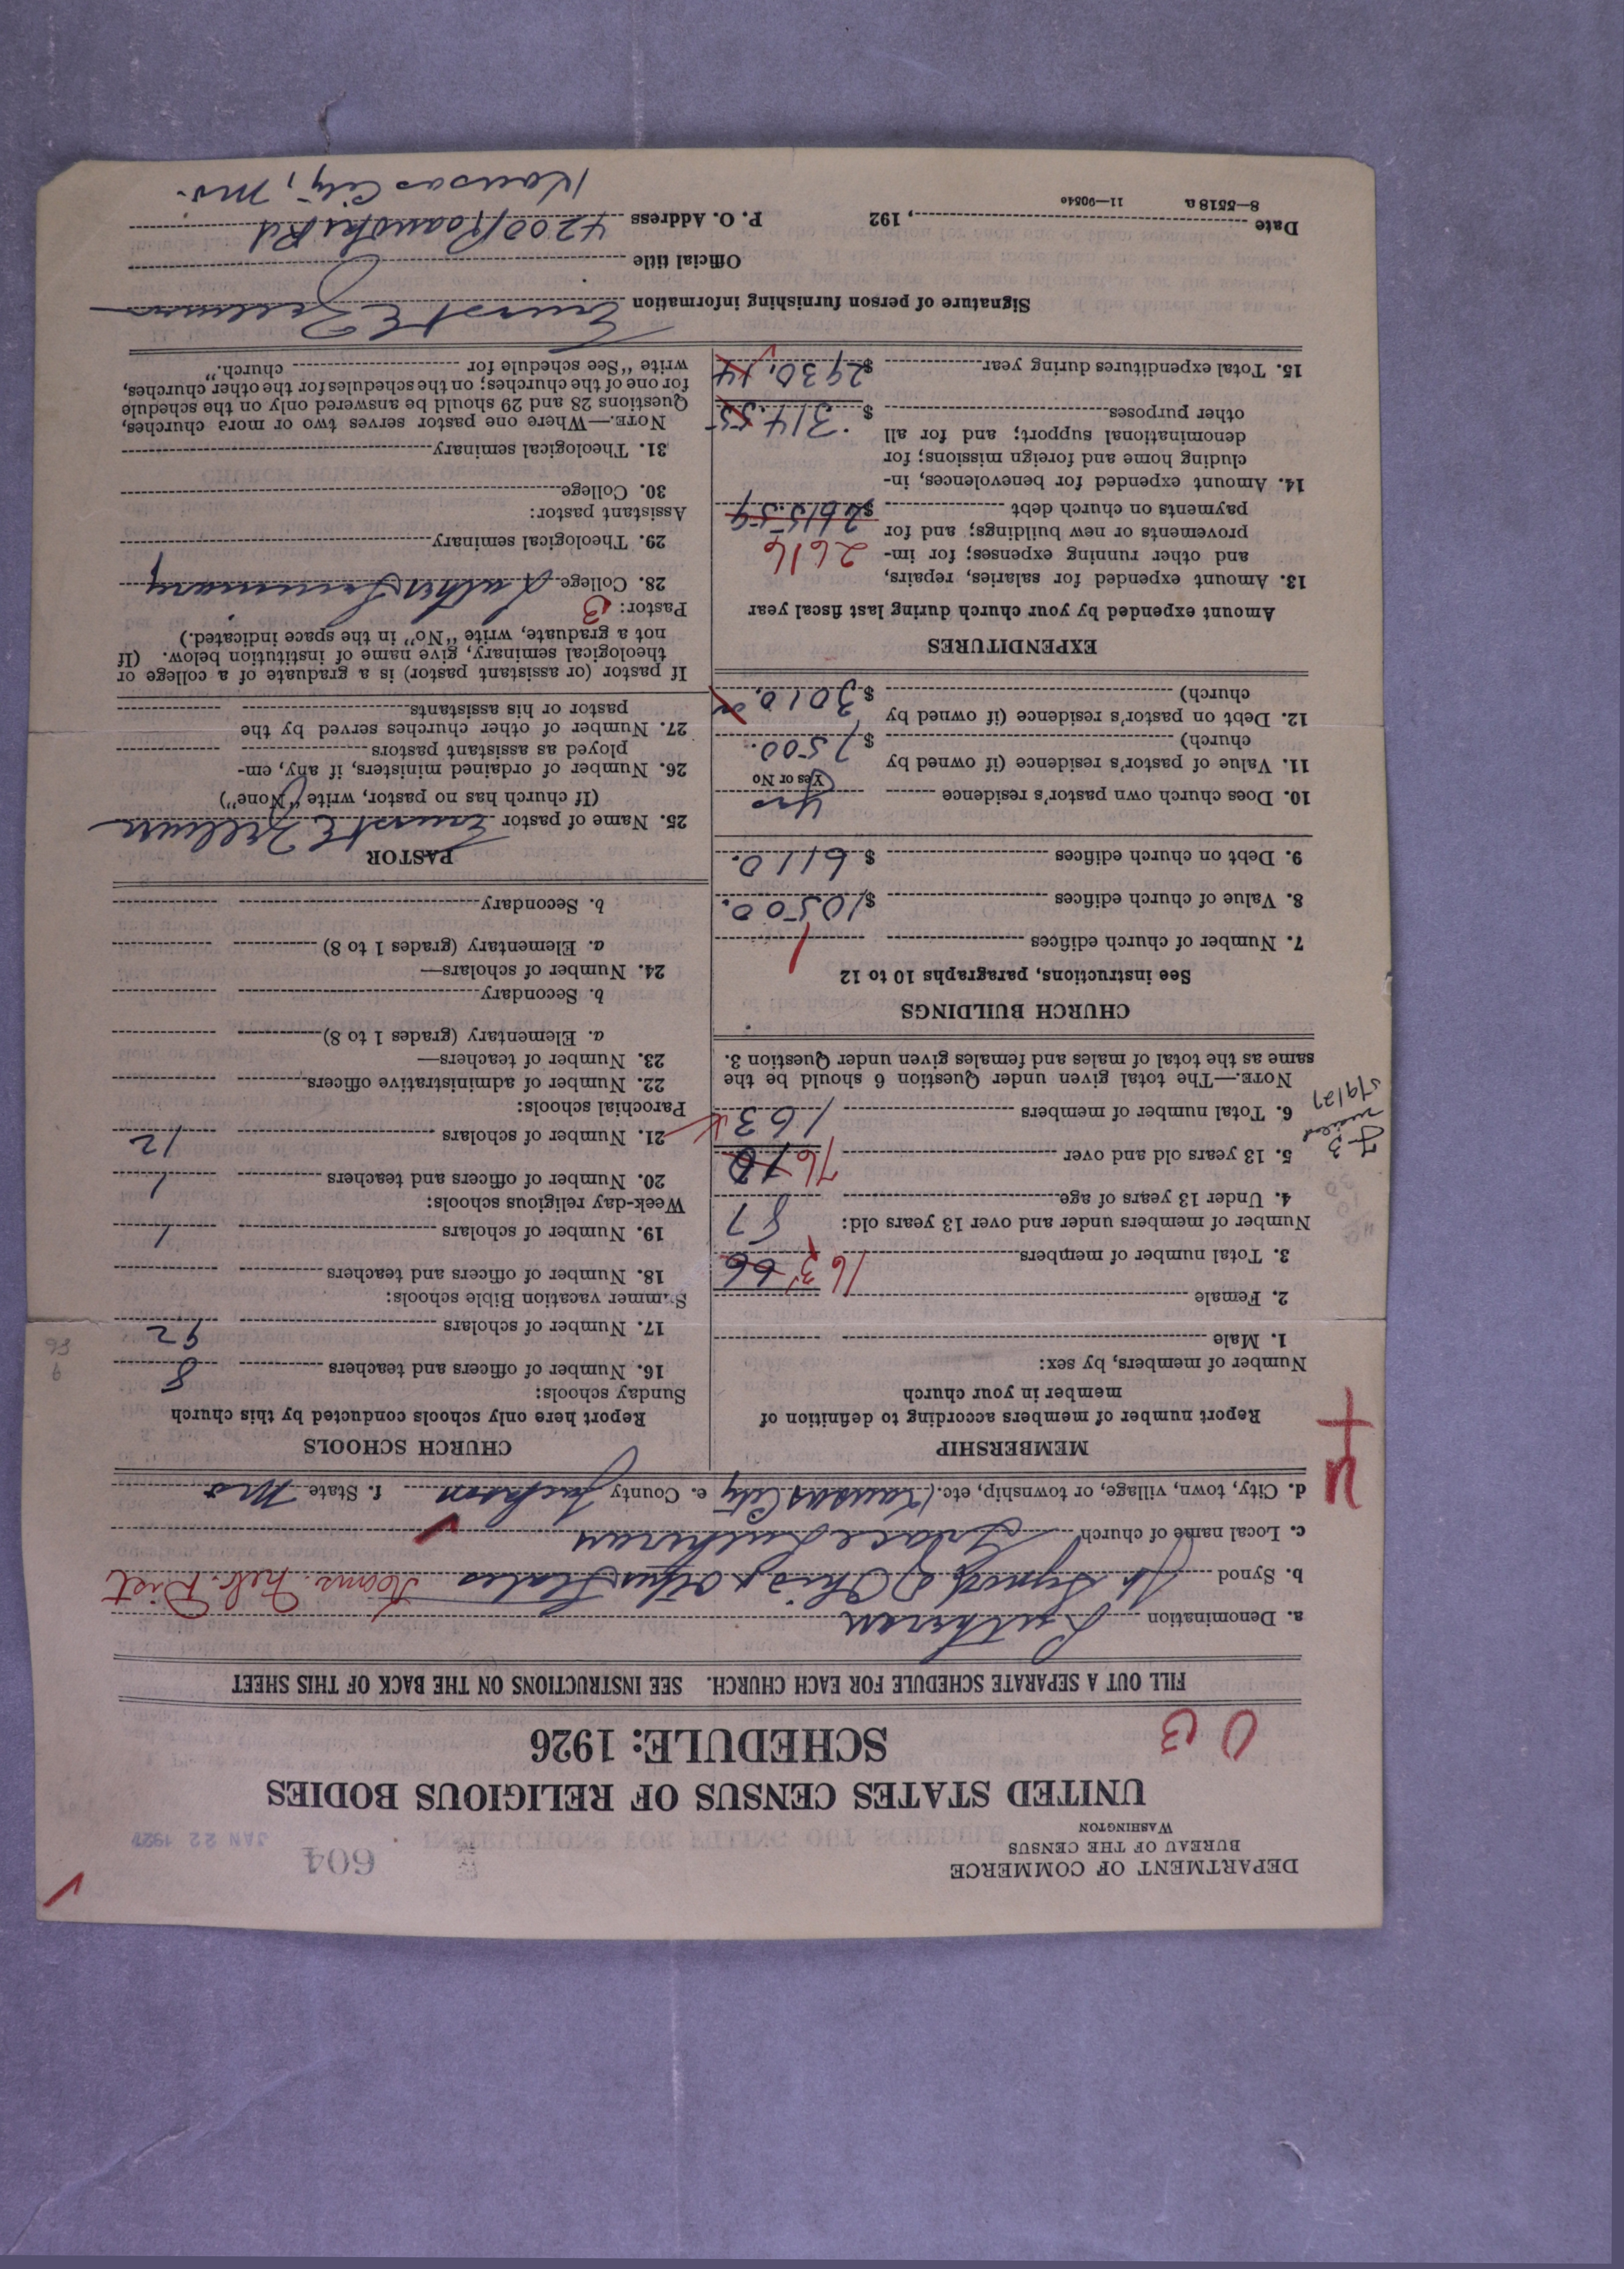 DEPARTMENT OF COMMERCE
BUREAU OF THE CENSUS
WASHINGTON
604
JAN 22 1927
UNITED STATES CENSUS OF RELIGIOUS BODIES
SCHEDULE: 1926
FILL OUT A SEPARATE SCHEDULE FOR EACH CHURCH. SEE INSTRUCTIONS ON THE BACK OF THIS SHEET
a. Denomination Lutheran
b. Synod Jt. Synod of Ohio & other States Kans. Neb. Dist
c. Local name of church Grace Lutheran
d. City, town, village, or township, etc. Kansas City e. County Jackson f. State Mo
MEMBERSHIP
Report number of members according to definition of
member in your church
Number of members, by sex:
1. Male
2. Female
3. Total number of members 163 66
Number of members under and over 13 years old:
4. Under 13 years of age 87
5. 13 years old and over 76
6. Total number of members 163
NOTE.—The total given under Question 6 should be the
same as the total of males and females given under Question 3.
5/9/27
CHURCH BUILDINGS
See instructions, paragraphs 10 to 12
7. Number of church edifices 1
8. Value of church edifices $10500.
9. Debt on church edifices $6110.
10. Does church own pastor's residence Yes
Yes or No
11. Value of pastor's residence (if owned by
church) $7500.
12. Debt on pastor's residence (if owned by
church) $3010.
EXPENDITURES
Amount expended by your church during last fiscal year
13. Amount expended for salaries, repairs,
and other running expenses; for im-
provements or new buildings; and for
payments on church debt $2615.59
2616
14. Amount expended for benevolences, in-
cluding home and foreign missions; for
denominational support; and for all
other purposes $314.55
15. Total expenditures during year $2930.14
CHURCH SCHOOLS
Report here only schools conducted by this church
Sunday schools:
16. Number of officers and teachers 8
17. Number of scholars 92
Summer vacation Bible schools:
18. Number of officers and teachers
19. Number of scholars 1
Week-day religious schools:
20. Number of officers and teachers 1
21. Number of scholars 12
Parochial schools:
22. Number of administrative officers
23. Number of teachers—
a. Elementary (grades 1 to 8)
b. Secondary
24. Number of scholars—
a. Elementary (grades 1 to 8)
b. Secondary
PASTOR
25. Name of pastor Ernst E
(If church has no pastor, write "None")
26. Number of ordained ministers, if any, em-
ployed as assistant pastors
27. Number of other churches served by the
pastor or his assistants
If pastor (or assistant pastor) is a graduate of a college or
theological seminary, give name of institution below. (If
not a graduate, write "No" in the space indicated.)
Pastor:
28. College Luther Seminary
29. Theological seminary
Assistant pastor:
30. College
31. Theological seminary
NOTE.—Where one pastor serves two or more churches,
Questions 28 and 29 should be answered only on the schedule
for one of the churches; on the schedules for the other churches,
write "See schedule for church."
Signature of person furnishing information Ernst E
Official title
Date , 192 P. O. Address 4200 Roanoke Rd
Kansas City, Mo.
8—5518 a 11—9054c